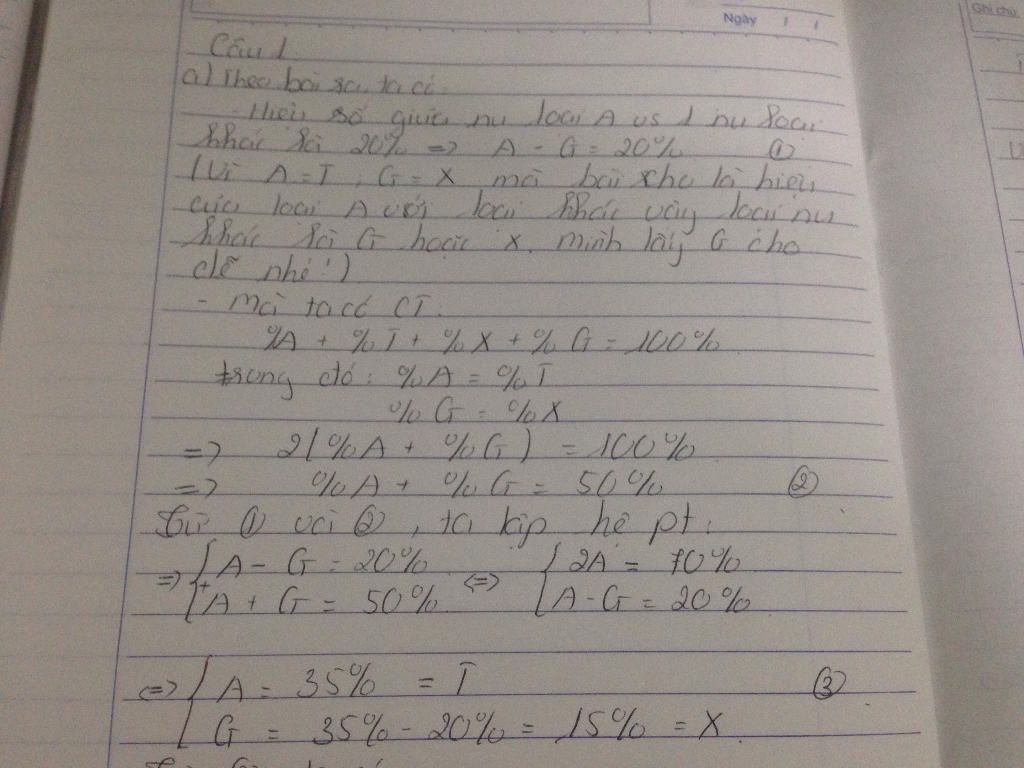 Ngày / /
Ghi chú
Câu 1
a) Theo bài ra, ta có:
- Hiệu số giữa nu loại A vs 1 nu loại
khác là 20% => A - G = 20% ①
(Vì A = T; G = X mà bài cho là hiệu
của loại A với loại khác vậy loại nu
khác là G hoặc X. mình lấy G cho
dễ nhé!)
- Mà ta có CT:
%A + %T + %X + %G = 100%
trong đó: %A = %T
%G = %X
=> 2(%A + %G) = 100%
=> %A + %G = 50% ②
Từ ① và ②, ta lập hệ pt:
=> { A - G = 20% <=> { 2A = 70%
+ A + G = 50% A - G = 20%
<=> { A = 35% = T ③
G = 35% - 20% = 15% = X